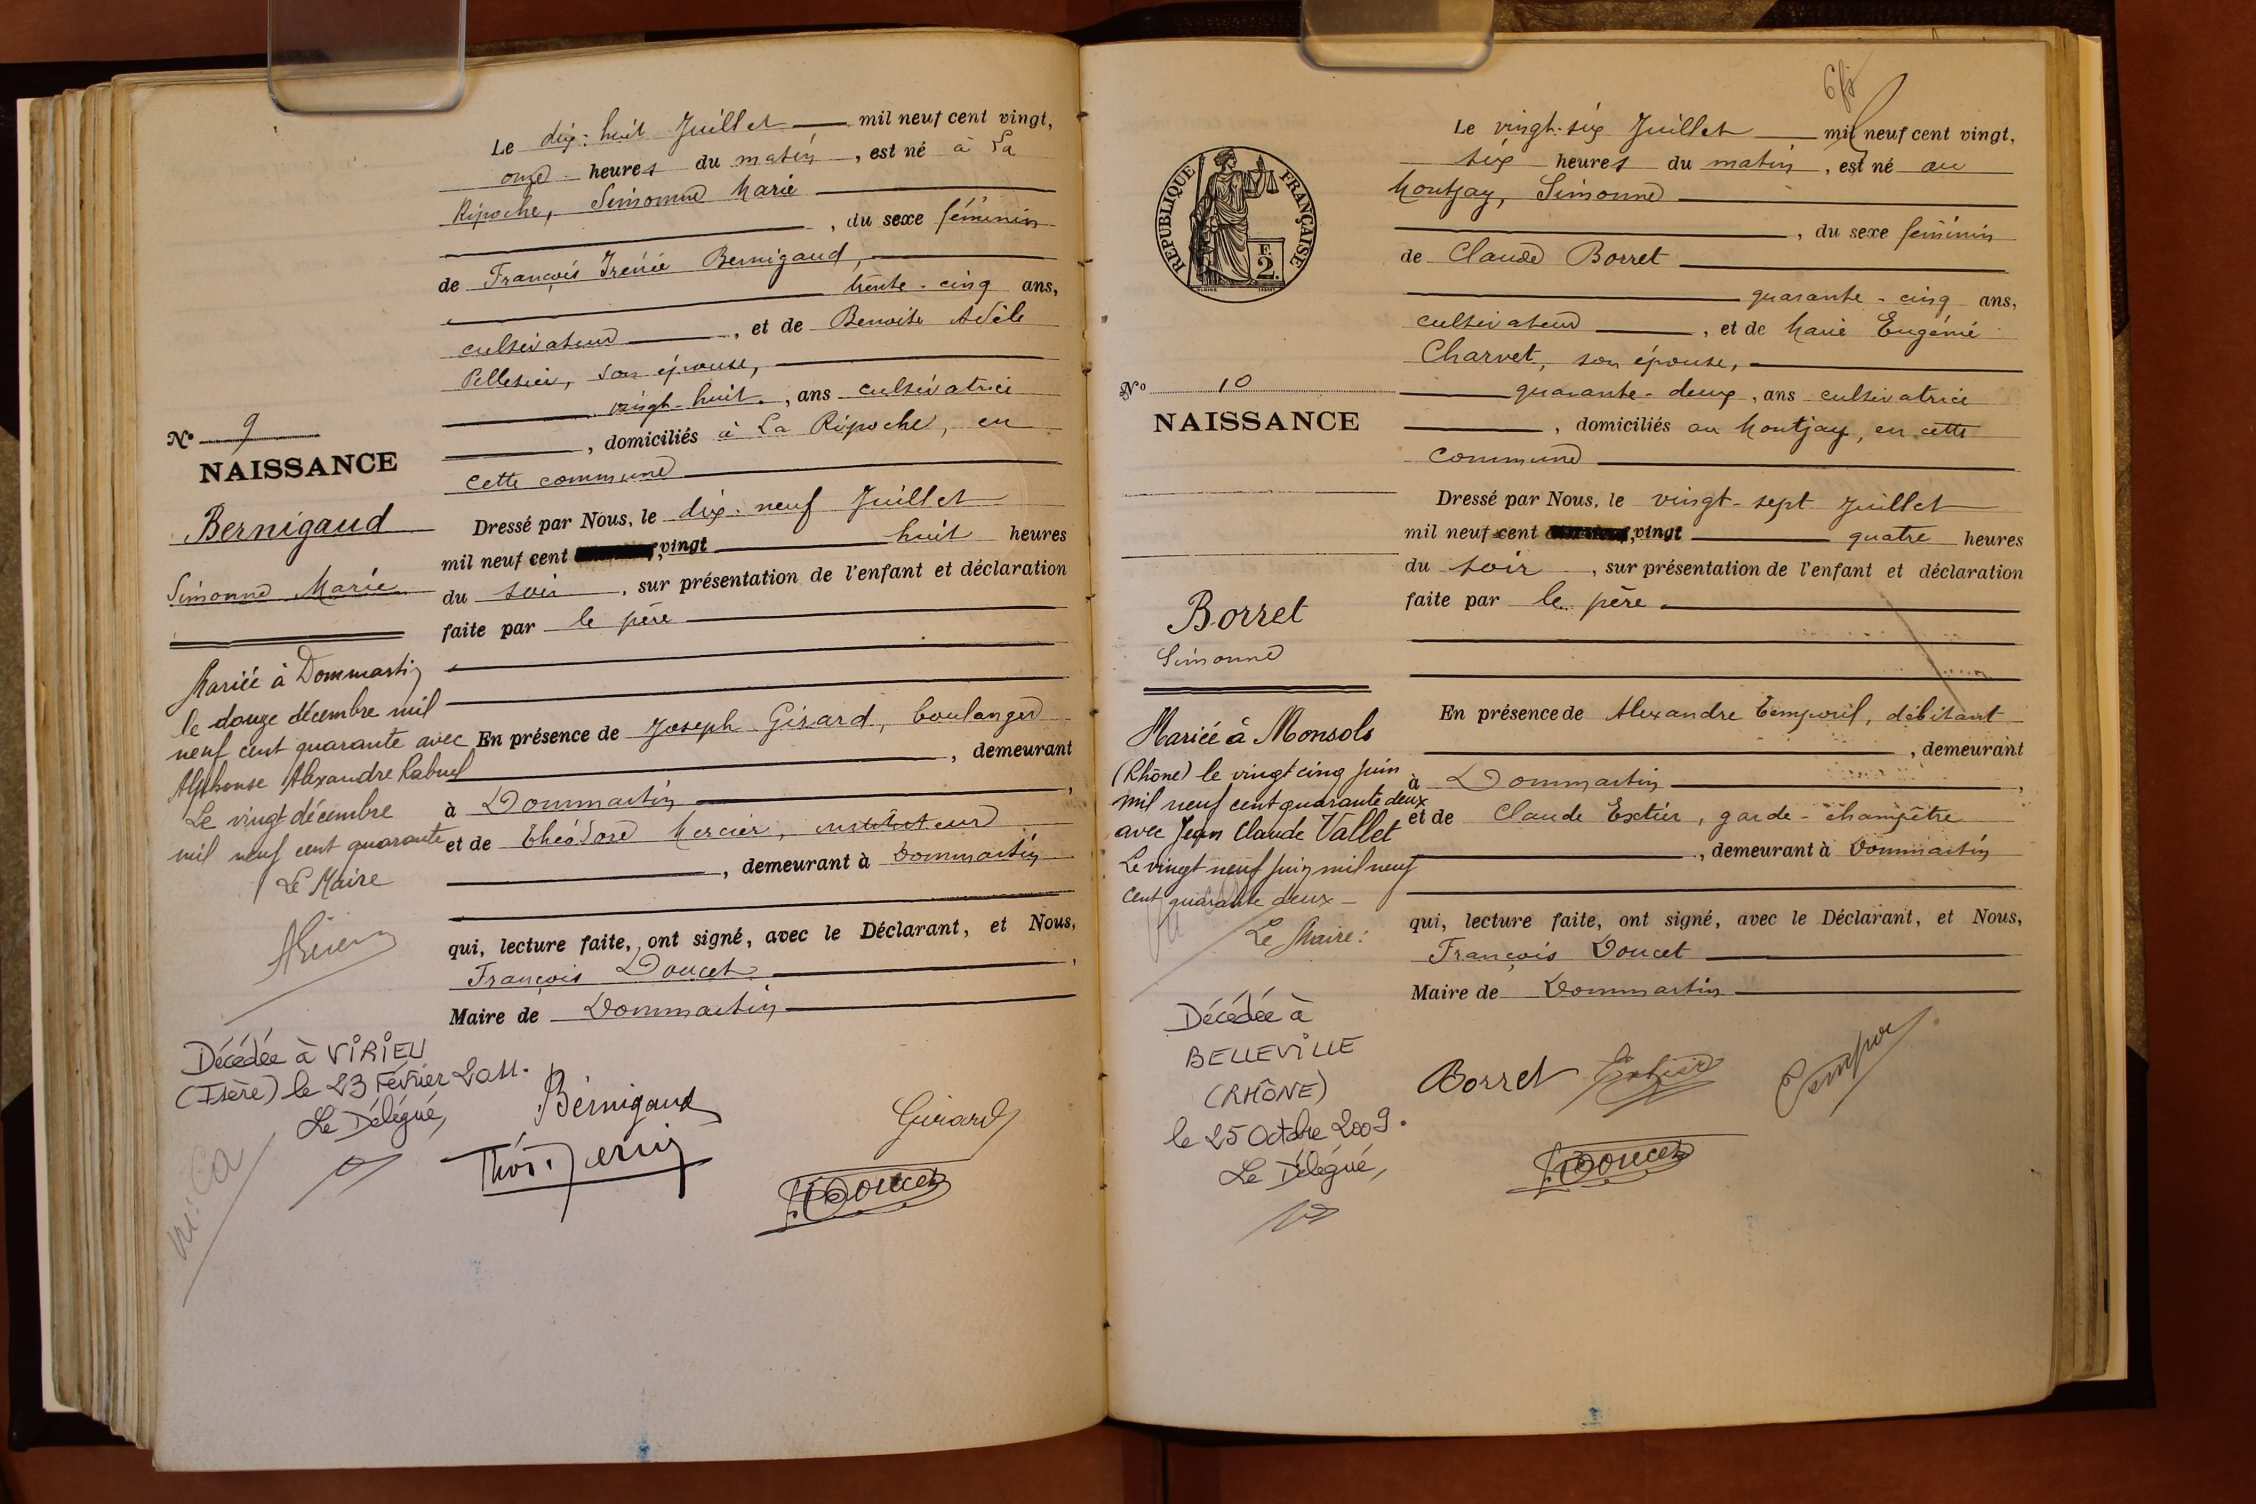 Le dix-huit Juillet mil neuf cent vingt,
onze heures du matin, est né à La
Ripoche, Simonne Marie
, du sexe féminin
de François Irénée Bernigaud,
trente-cinq ans,
cultivateur, et de Benoite Adèle
Pelletier, son épouse,
vingt-huit, ans cultivatrice
, domiciliés à La Ripoche, en
cette commune
Dressé par Nous, le dix-neuf Juillet
mil neuf cent vingt huit heures
du soir, sur présentation de l'enfant et déclaration
faite par le père
En présence de Joseph Girard, boulanger
, demeurant
à Dommartin,
et de Théodore Mercier, instituteur
, demeurant à Dommartin
qui, lecture faite, ont signé, avec le Déclarant, et Nous,
François Doucet,
Maire de Dommartin
Bernigaud
Girard
F. Doucet
N° 9
NAISSANCE
Bernigaud
Simonne Marie
Mariée à Dommartin
le douze décembre mil
neuf cent quarante avec
Alphonse Alexandre Rabuel
Le vingt décembre
mil neuf cent quarante
Le Maire
Décédée à VIRIEU
(Isère) le 23 Février 2011.
Le Délégué,
Le vingt-six Juillet mil neuf cent vingt,
six heures du matin, est né au
Montjay, Simonne
, du sexe féminin
de Claude Borret
quarante-cinq ans,
cultivateur, et de Marie Eugénie
Charvet, son épouse,
quarante-deux, ans cultivatrice
, domiciliés au Montjay, en cette
commune
Dressé par Nous, le vingt-sept Juillet
mil neuf cent vingt quatre heures
du soir, sur présentation de l'enfant et déclaration
faite par le père
En présence de Alexandre Temporil, débitant
, demeurant
à Dommartin,
et de Claude Extier, garde-champêtre
, demeurant à Dommartin
qui, lecture faite, ont signé, avec le Déclarant, et Nous,
François Doucet
Maire de Dommartin
Borret Extier
F. Doucet
RÉPUBLIQUE FRANÇAISE
F.
2.
N° 10
NAISSANCE
Borret
Simonne
Mariée à Monsols
(Rhône) le vingt cinq juin
mil neuf cent quarante deux
avec Jean Claude Vallet
Le vingt neuf juin mil neuf
cent quarante deux –
Le Maire :
Décédée à
BELLEVILLE
(RHÔNE)
le 25 Octobre 2009.
Le Délégué,